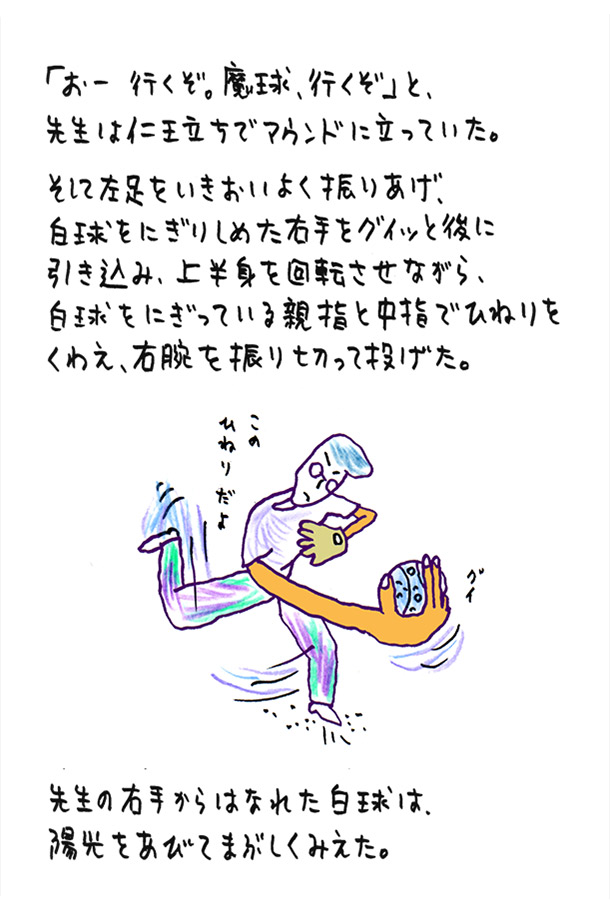 「おー 行くぞ。魔球、行くぞ」と、
先生は仁王立ちでマウンドに立っていた。
そして左足をいきおいよく振りあげ、
白球をにぎりしめた右手をグイッと後に
引き込み、上半身を回転させながら、
白球をにぎっている親指と中指でひねりを
くわえ、右腕を振り切って投げた。
この
ひねりだよ
グイ
先生の右手からはなれた白球は、
陽光をあびてまぶしくみえた。